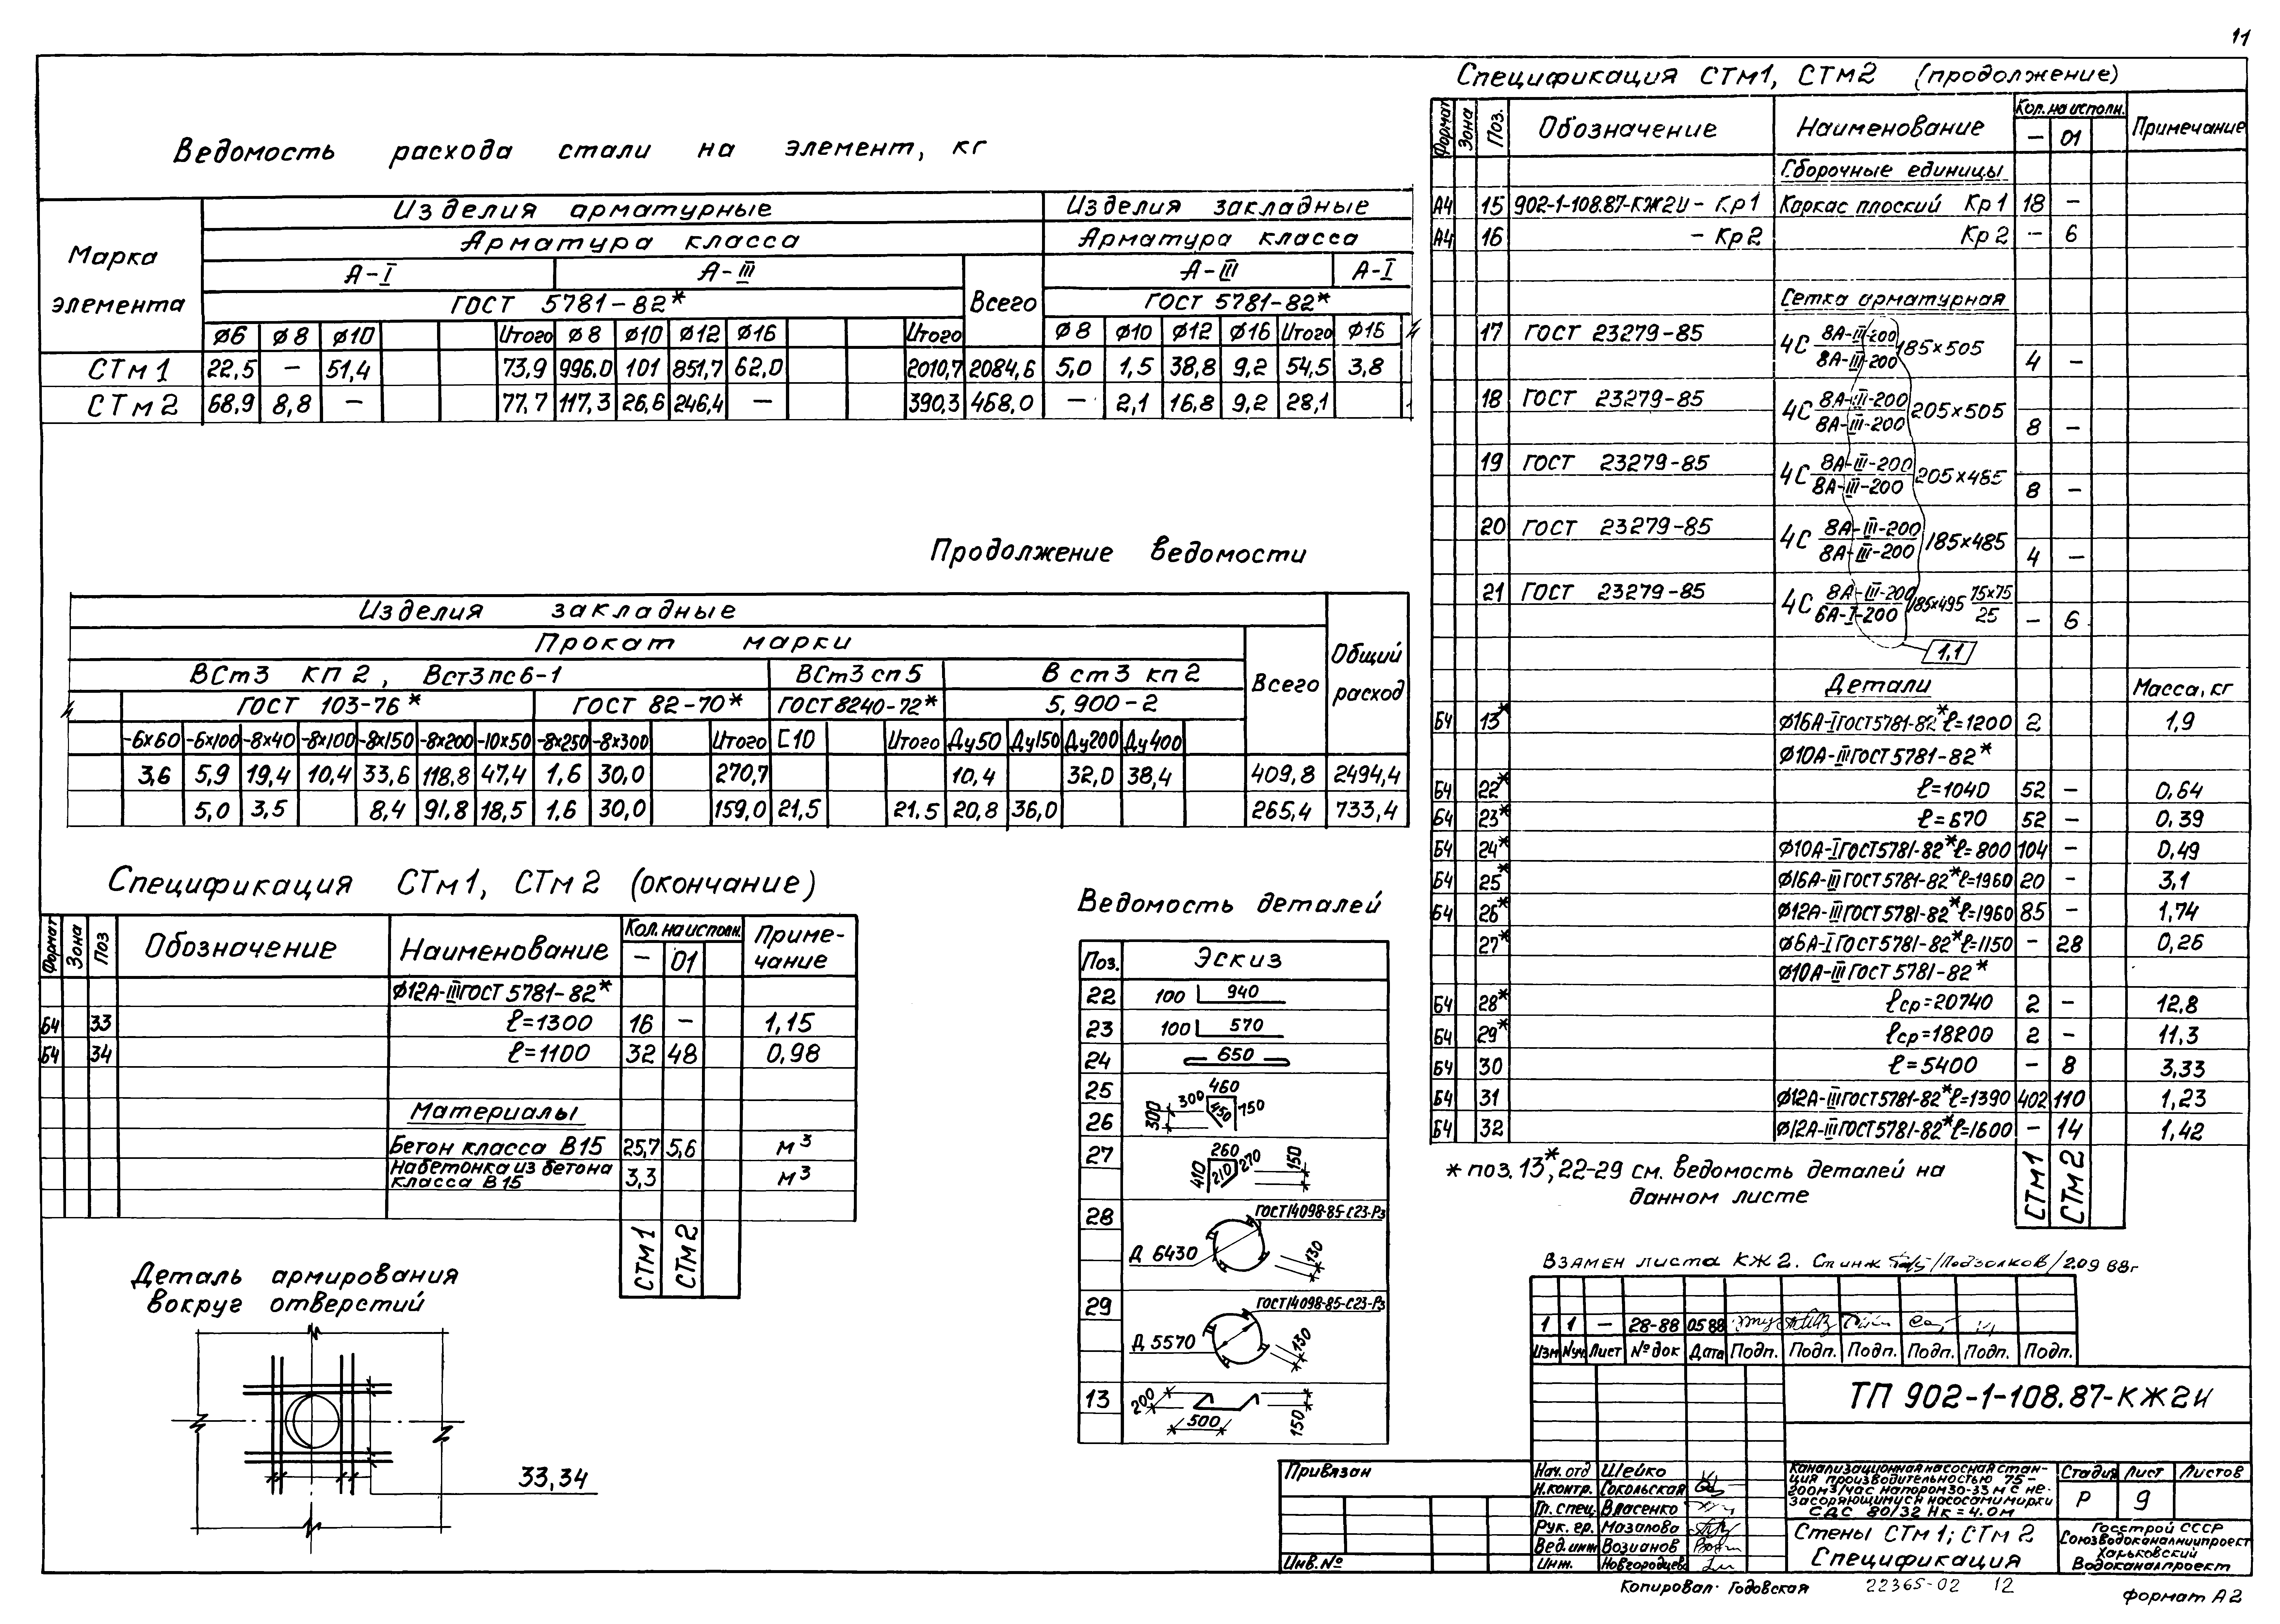 11
Ведомость расхода стали на элемент, кг
Марка элемента
Изделия арматурные
Изделия закладные
Арматура класса
Арматура класса
А-I А-III Всего А-III А-I
ГОСТ 5781-82* ГОСТ 5781-82*
ф6 ф8 ф10 Итого ф8 ф10 ф12 ф16 Итого ф8 ф10 ф12 ф16 Итого ф16
СТм1 22,5 – 51,4 73,9 996.0 101 851,7 62,0 2010,7 2084,6 5,0 1,5 38,8 9,2 54,5 3,8
СТм2 68,9 8,8 – 77,7 117,3 26,6 246,4 – 390,3 468,0 – 2,1 16,8 9,2 28,1
Продолжение ведомости
Изделия закладные
Прокат марки
Всего
Общий расход
ВСт3 кп2, Вст3пс6-1 ВСт3сп5 Вст3кп2
ГОСТ 103-76* ГОСТ 82-70* ГОСТ8240-72* 5,900-2
-6х60 -6х100 -8х40 -8х100 -8х150 -8х200 -10х50 -8х250 -8х300 Итого С10 Итого Ду50 Ду150 Ду200 Ду400
3,6 5,9 19,4 10,4 33,6 118,8 47,4 1,6 30,0 270,7 10,4 32,0 38,4 409,8 2494,4
5,0 3,5 8,4 91,8 18,5 1,6 30,0 159,0 21,5 21.5 20,8 36,0 265,4 733,4
Спецификация СТм1, СТм2 (окончание)
Формат Зона Поз Обозначение Наименование Кол. на исполн. Примечание
– 01
ф12А-IIIГОСТ5781-82*
Б4 33 ℓ=1300 16 – 1,15
Б4 34 ℓ=1100 32 48 0,98
Материалы
Бетон класса В15 25,7 5,6 м³
Набетонка из бетона
класса В15 3,3 м³
СТм1 СТм2
Деталь армирования
вокруг отверстий
33,34
Ведомость деталей
Поз. Эскиз
22 100 940
23 100 570
24 650
25 300 300 460 450 750
26
27 410 260 210 270 150
28 ГОСТ14098-85-С23-Рз
Д 6430 130
29 ГОСТ14098-85-С23-Рз
Д 5570 130
13 200 500 150
Спецификация СТм1, СТм2 (продолжение)
Формат Зона Поз. Обозначение Наименование Кол. на исполн. Примечание
– 01
Сборочные единицы
А4 15 902-1-108.87-КЖ2И - Кр1 Каркас плоский Кр1 18 –
А4 16 - Кр2 Кр2 – 6
Сетка арматурная
17 ГОСТ 23279-85 4С 8А-III-200/8А-III-200 185х505 4 –
18 ГОСТ 23279-85 4С 8А-III-200/8А-III-200 205х505 8 –
19 ГОСТ 23279-85 4С 8А-III-200/8А-III-200 205х485 8 –
20 ГОСТ 23279-85 4С 8А-III-200/8А-III-200 185х485 4 –
21 ГОСТ 23279-85 4С 8А-III-200/6А-I-200 185х495 75х75/25 – 6
1,1
Детали Масса, кг
Б4 13* ф16А-IГОСТ5781-82*ℓ=1200 2 1,9
ф10А-IIIГОСТ5781-82*
Б4 22* ℓ=1040 52 – 0,64
Б4 23* ℓ=670 52 – 0,39
Б4 24* ф10А-IГОСТ5781-82*ℓ=800 104 – 0,49
Б4 25* ф16А-IIIГОСТ5781-82*ℓ=1960 20 – 3,1
Б4 26* ф12А-IIIГОСТ5781-82*ℓ=1960 85 – 1,74
27* ф6А-IГОСТ5781-82*ℓ=1150 – 28 0,26
ф10А-IIIГОСТ5781-82*
Б4 28* ℓср=20740 2 – 12,8
Б4 29* ℓср=18200 2 – 11,3
Б4 30 ℓ=5400 – 8 3,33
Б4 31 ф12А-IIIГОСТ5781-82*ℓ=1390 402 110 1,23
Б4 32 ф12А-IIIГОСТ5781-82*ℓ=1600 – 14 1,42
СТм1 СТм2
* поз. 13*, 22-29 см. ведомость деталей на
данном листе
Взамен листа КЖ2. Ст инж /Подзолков/ 2.09 88г
1 1 – 28-88 05 88
Изм Nуч. Лист №док Дата Подп. Подп. Подп. Подп. Подп. Подп.
ТП 902-1-108.87-КЖ2И
Привязан
Инв.№
Нач. отд Шейко
Н.контр. Сокольская
Гл. спец. Власенко
Рук. гр. Мазалова
Вед.инж Возианов
Инж. Новгородцева
Канализационная насосная стан-
ция производительностью 75-
200м³/час напором 30-33м с не-
засоряющимися насосами марки
СДС 80/32 Нк=4.0м
Стадия Лист Листов
Р 9
Стены СТм1; СТм2
Спецификация
Госстрой СССР
Союзводоканалниипроект
Харьковский
Водоканалпроект
Копировал: Годовская 22365-02 12 Формат А2